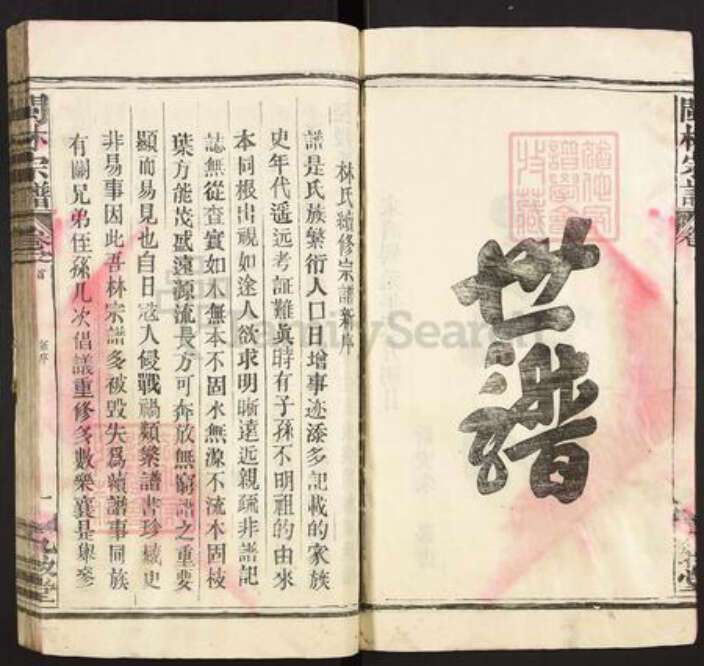 世譜
林氏續修宗譜新序
譜是氏族繁衍人口日增事迹添多記載的家族
史年代遥远考証難眞時有子孫不明祖的由來
本同根出視如途人欲求明晰遠近親疏非譜記
誌無從查實如木無本不固水無源不流木固枝
葉方能茂盛遠源流長方可奔放無窮譜之重要
顯而易見也自日寇入侵戰禍頻繁譜書珍藏史
非易事因此吾林宗譜多被毀失為續譜事同族
有關兄弟侄孫几次倡議重修多數樂襄是舉參
林宗譜
卷之首
新序
一
九牧堂
FamilySearch